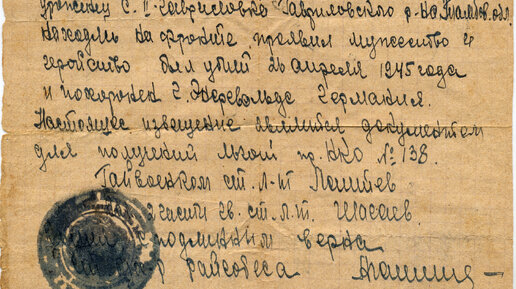 уроженец с. 2-Гавриловка Гавриловского р-на Тамбов. обл.
находясь на фронте, проявил мужество и
геройство был убит 26 апреля 1945 года
и похоронен г. Эберсвальде Германия.
Настоящее извещение является документом
для получения льгот пр. НКО № 138.
Райвоенком ст. л-нт
части гв. ст. л.т.
подлинным верна
райсобеса